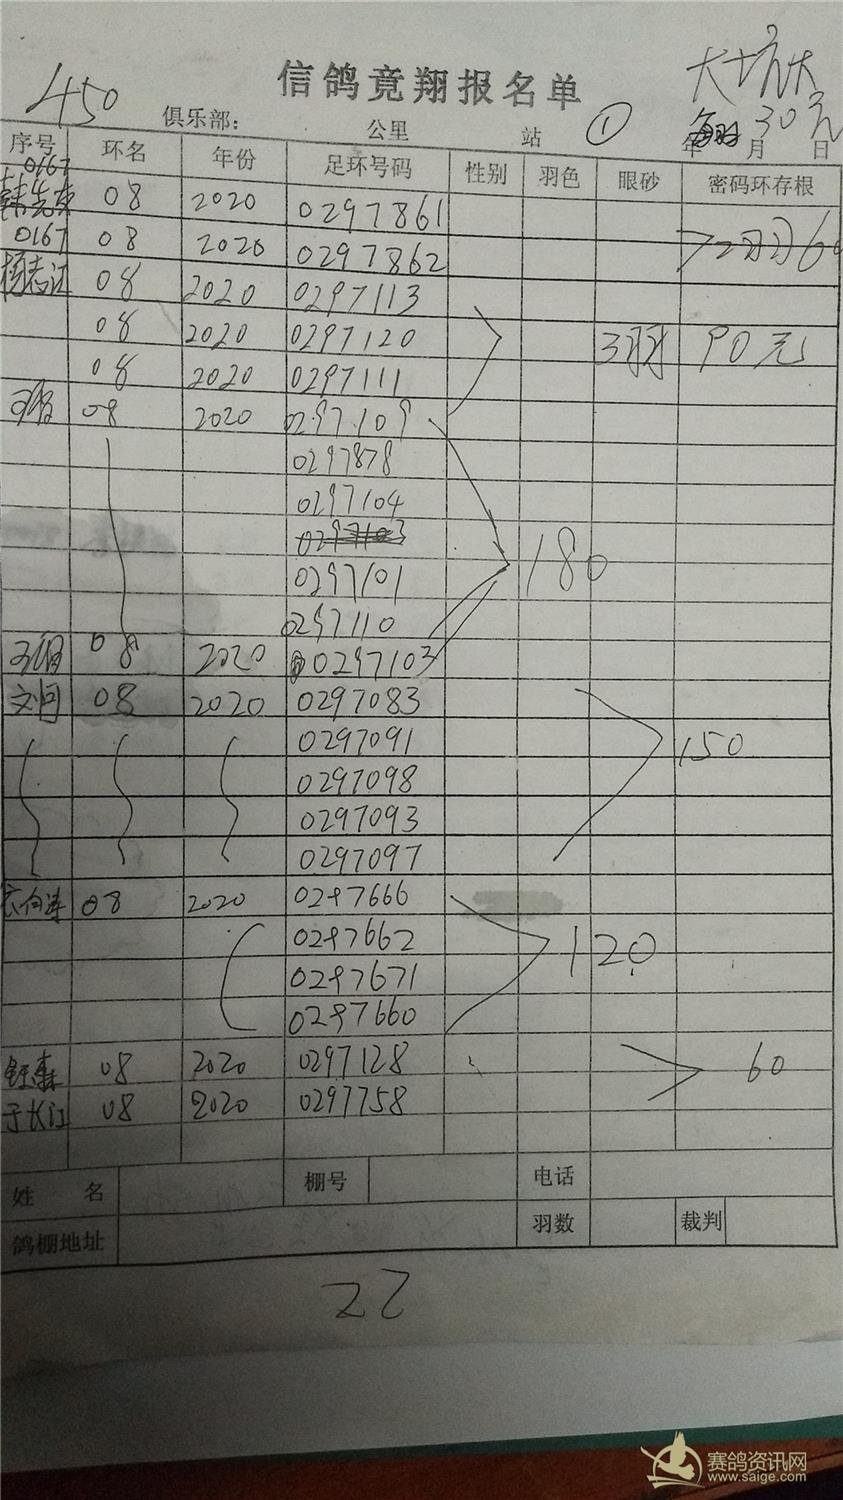 信鸽竟翔报名单
450
大坑大
每羽30元
俱乐部: 公里 站 ① 年 月 日
序号 环名 年份 足环号码 性别 羽色 眼砂 密码环存根
0167 08 2020 0297861
0167 08 2020 0297862 60
杨志江 08 2020 0297113
08 2020 0297120 3羽 90元
08 2020 0297111
08 2020 0297109
0297878
0297104
0297103
0297101 180
0297110
08 2020 0297103
文同 08 2020 0297083
0297091 150
0297098
0297093
0297097
08 2020 0297666
0297662 120
0297671
0297660
08 2020 0297128 60
于长江 08 2020 0297758
姓名 棚号 电话
鸽棚地址 羽数 裁判
22
赛鸽资讯网
www.saige.com